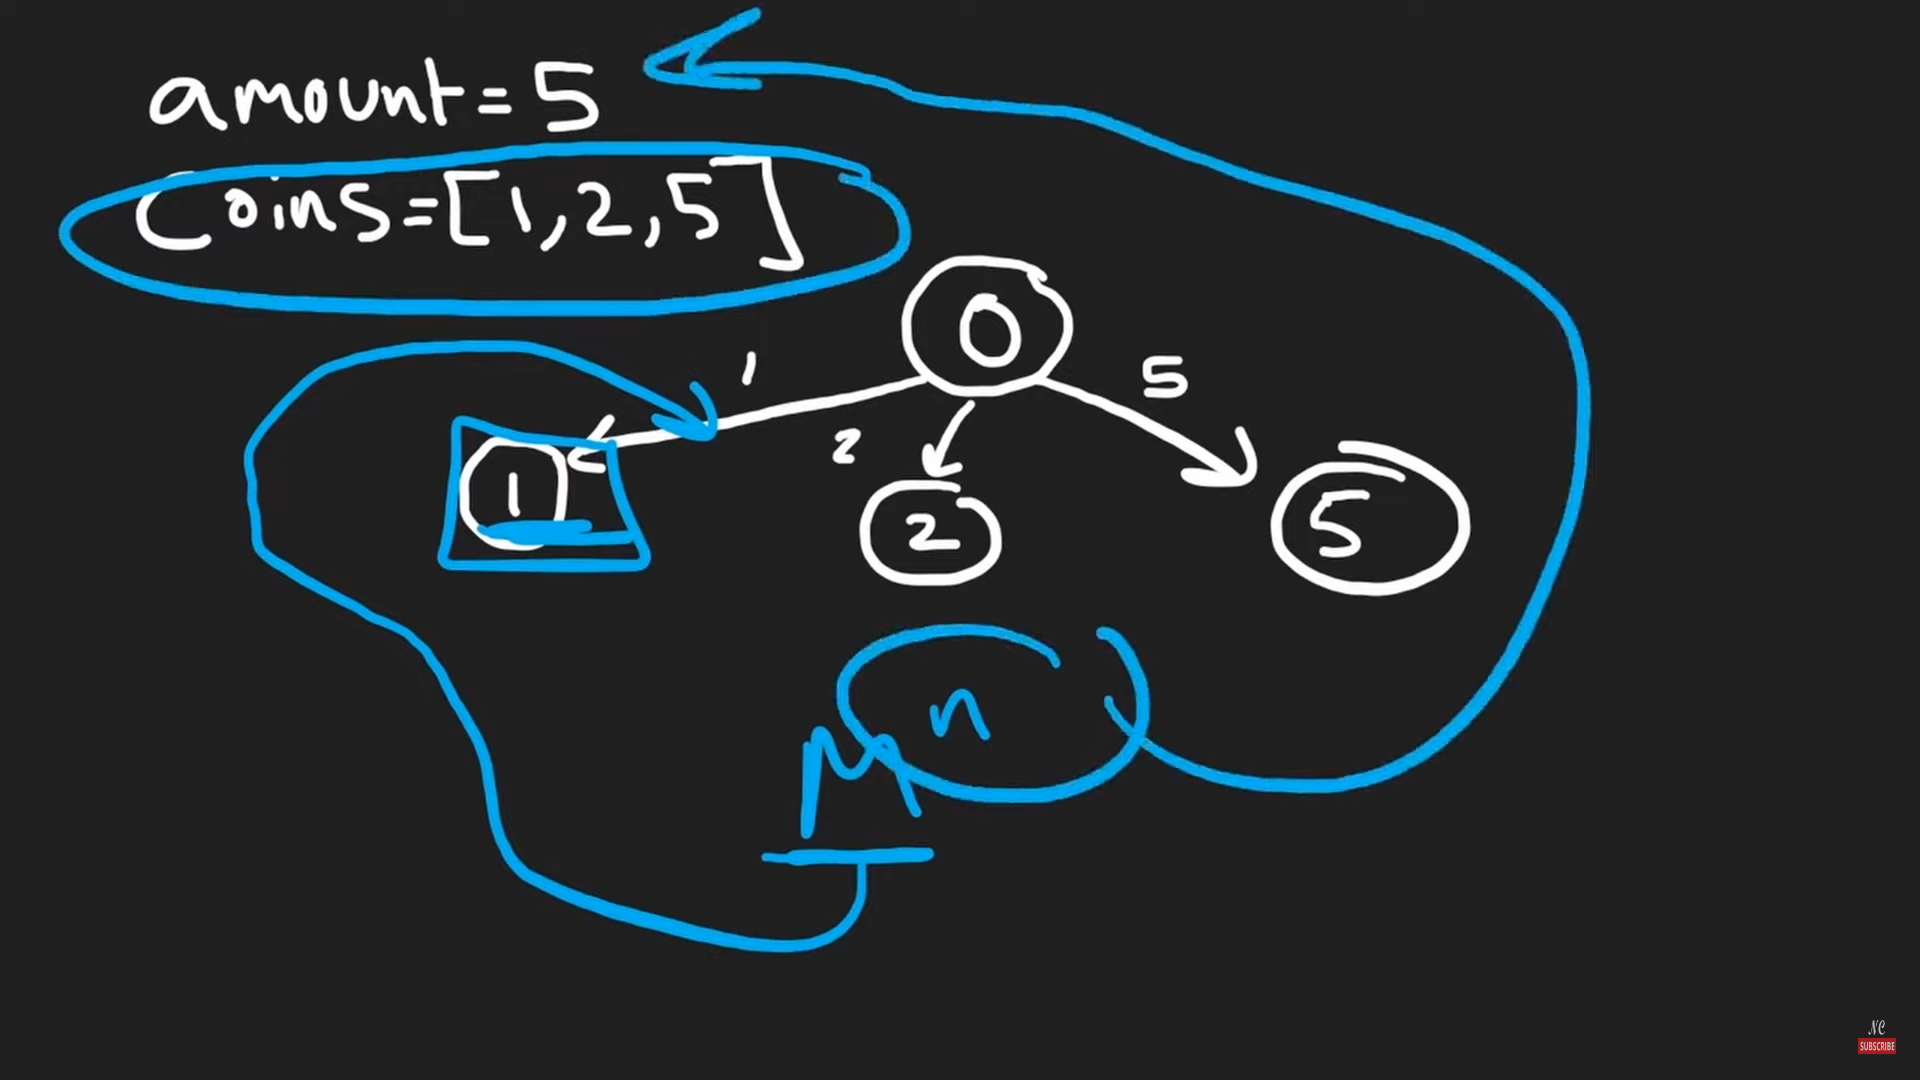 amount=5
Coins=[1,2,5]
0
1
2
5
1
2
5
n
M
NC
SUBSCRIBE